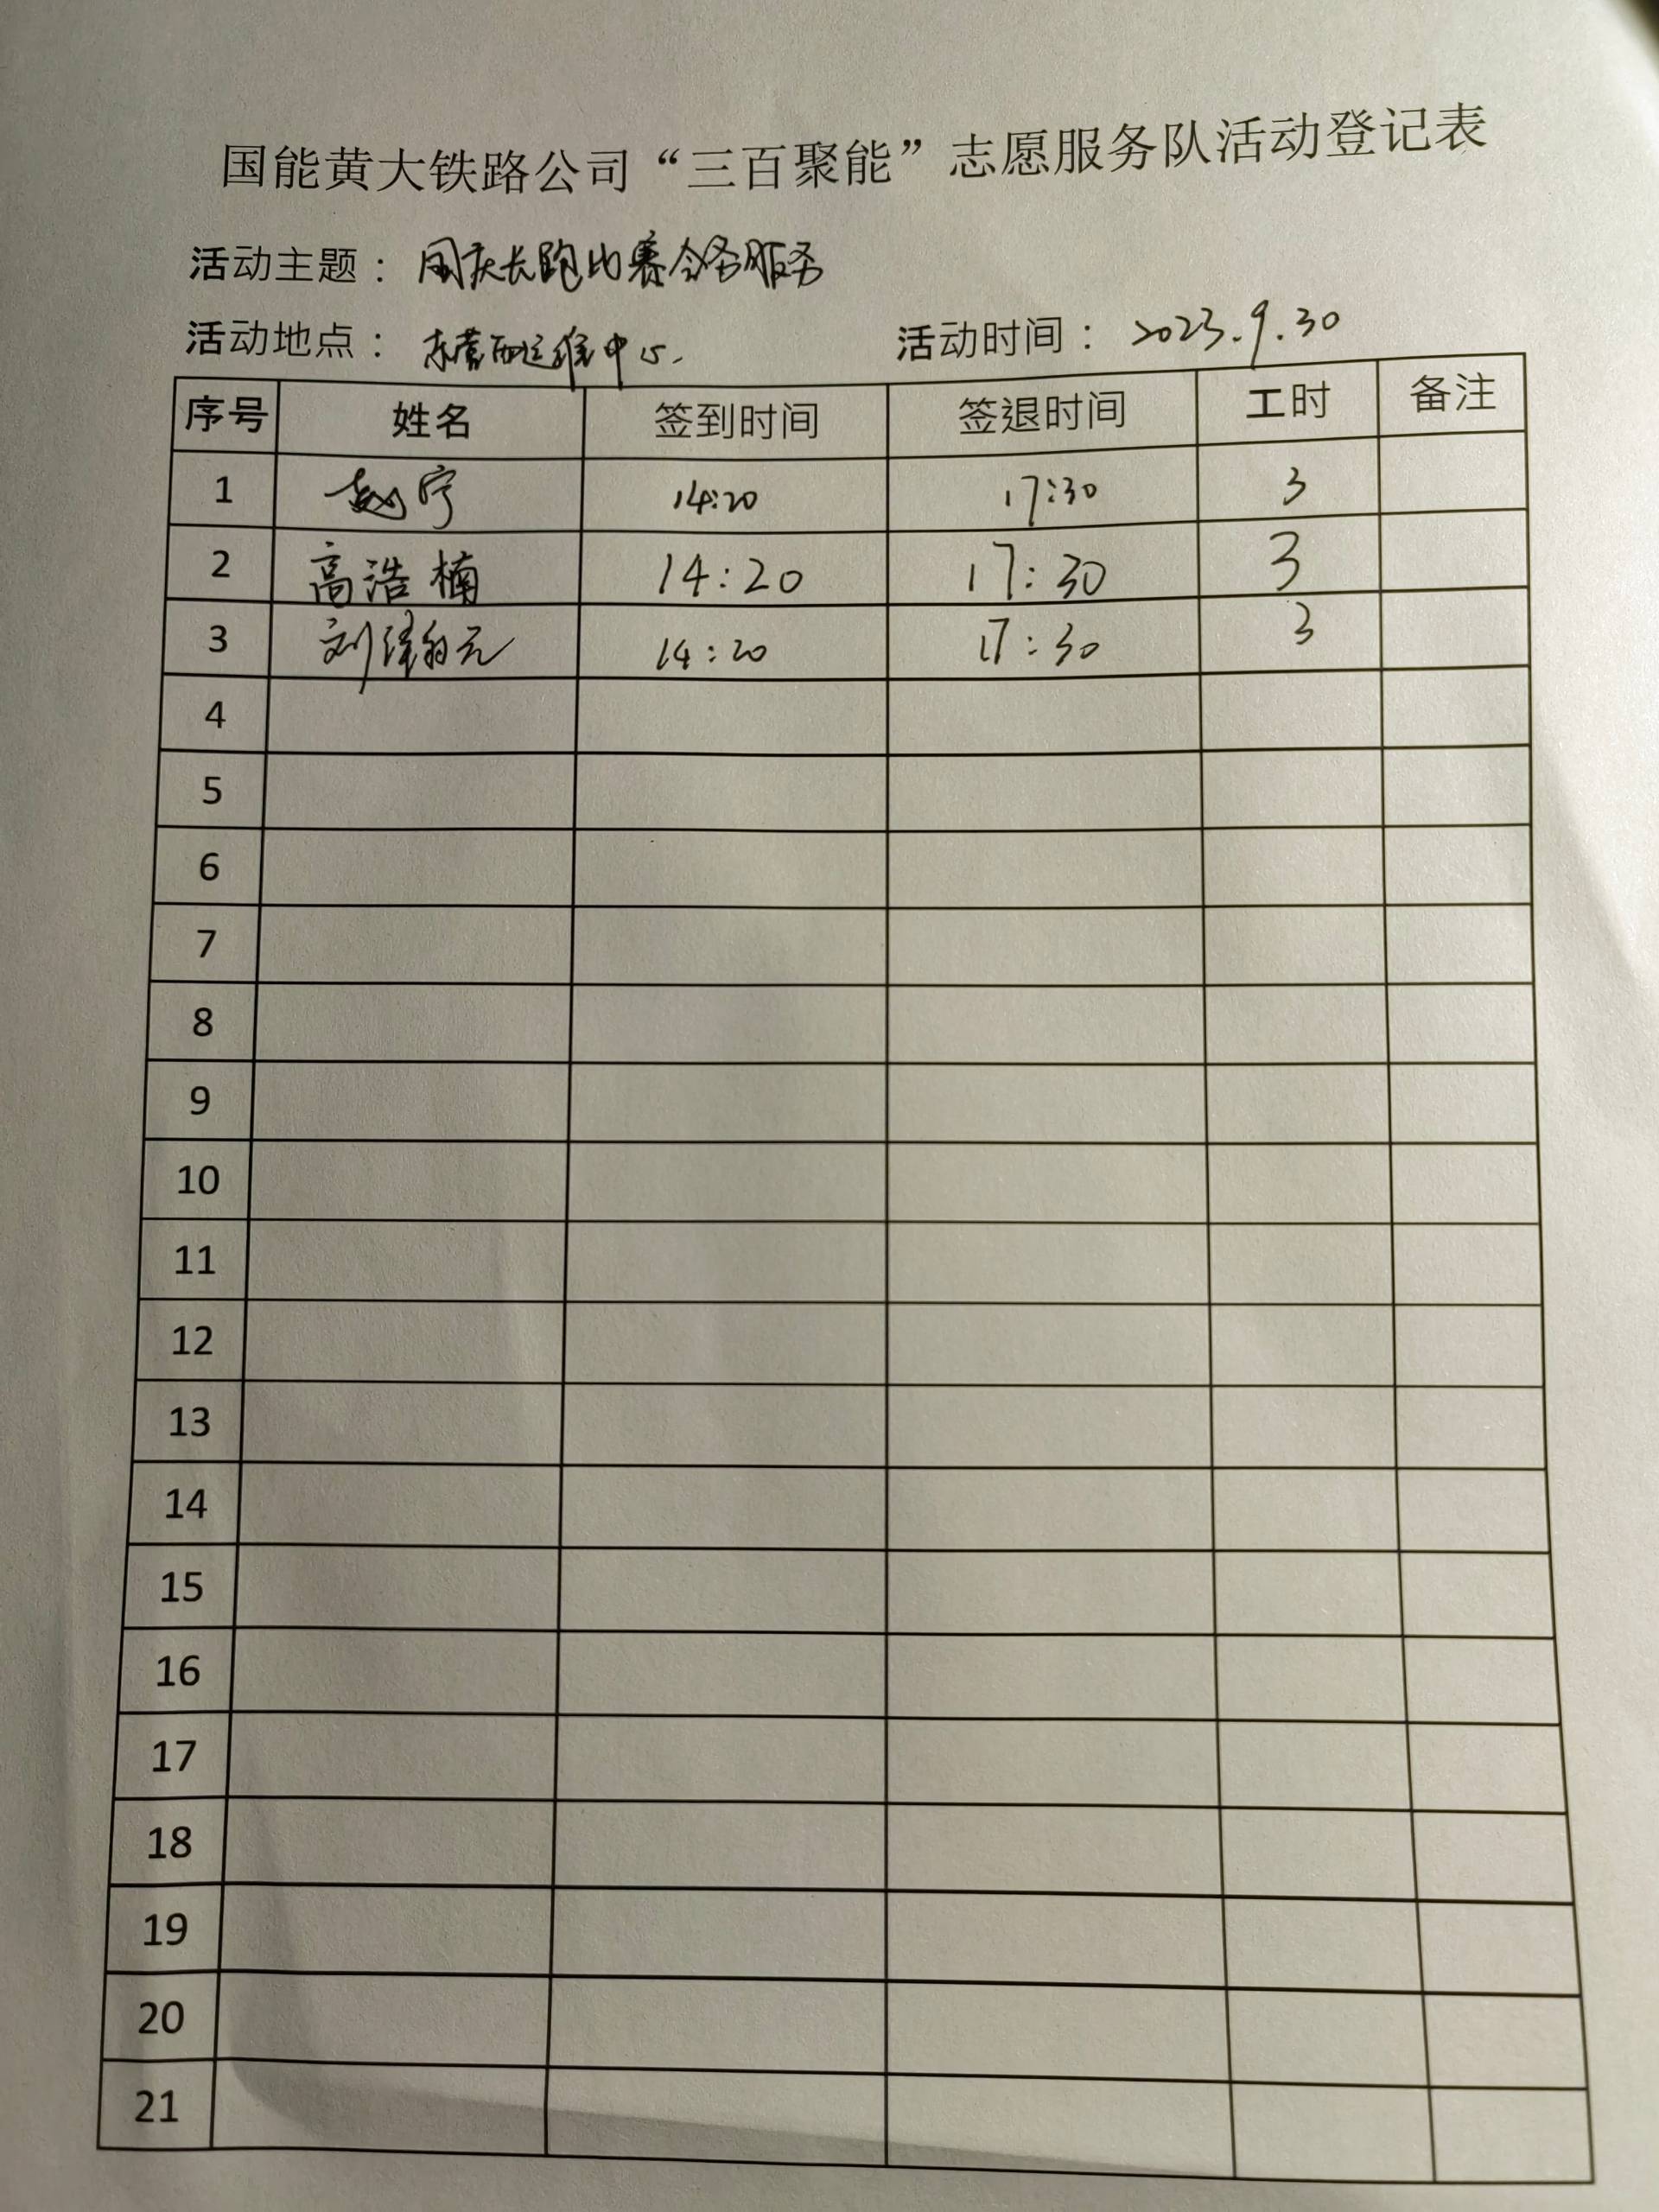 国能黄大铁路公司“三百聚能”志愿服务队活动登记表
活动主题：国庆长跑比赛会务服务
活动地点：东营西运维中心. 活动时间：2023.9.30
序号 姓名 签到时间 签退时间 工时 备注
1 赵宁 14:20 17:30 3
2 高浩楠 14:20 17:30 3
3 刘 元 14:20 17:30 3
4
5
6
7
8
9
10
11
12
13
14
15
16
17
18
19
20
21